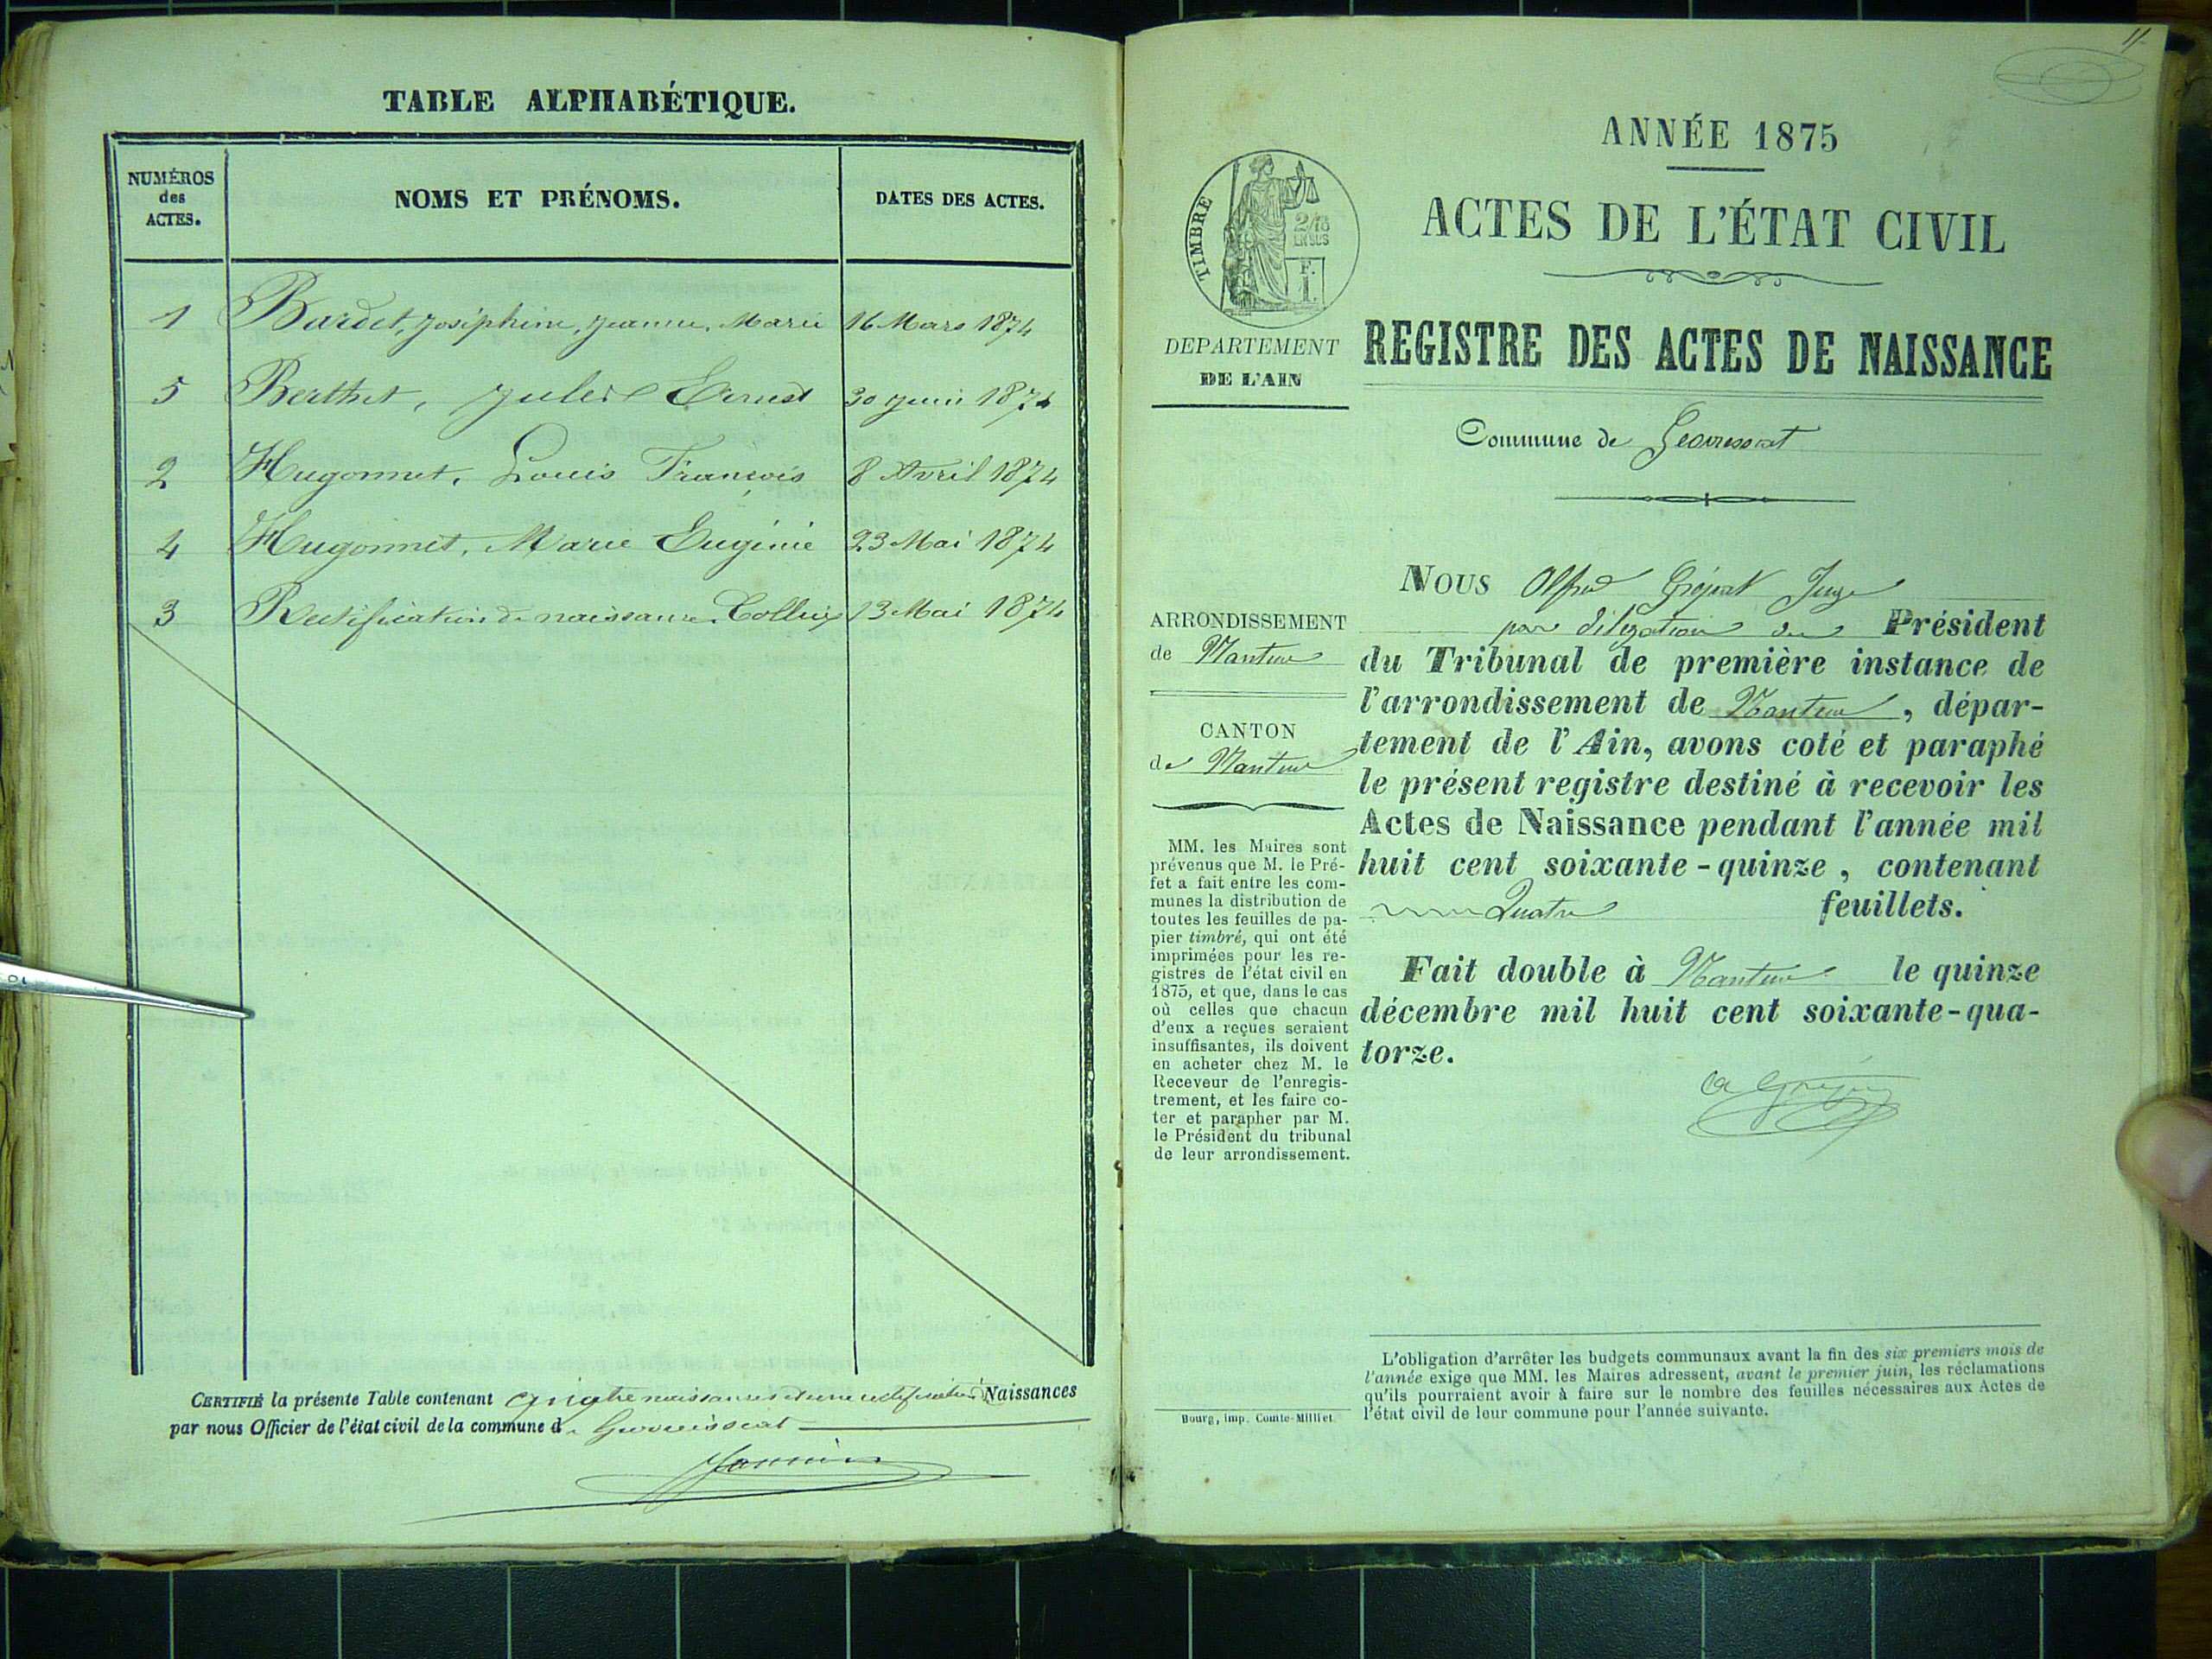 TABLE ALPHABÉTIQUE.
NUMÉROS
des
ACTES.
NOMS ET PRÉNOMS.
DATES DES ACTES.
1 Bardet, Joséphine, Jeanne, Marie 16 Mars 1874
5 Berthet, Jules Ernest 30 Juin 1874
2 Hugonnet, Louis François 8 Avril 1874
4 Hugonnet, Marie Eugénie 23 Mai 1874
3 Rectification de naissance 13 Mai 1874
CERTIFIÉ la présente Table contenant quatre naissances et une rectification Naissances
par nous Officier de l'état civil de la commune d
11
ANNÉE 1875
ACTES DE L'ÉTAT CIVIL
TIMBRE
2/10
EN SUS
F.
1.
DEPARTEMENT
DE L'AIN
REGISTRE DES ACTES DE NAISSANCE
Commune de Geovressiat
ARRONDISSEMENT
de Nantua
CANTON
de Nantua
MM. les Maires sont
prévenus que M. le Pré-
fet a fait entre les com-
munes la distribution de
toutes les feuilles de pa-
pier timbré, qui ont été
imprimées pour les re-
gistres de l'état civil en
1875, et que, dans le cas
où celles que chacun
d'eux a reçues seraient
insuffisantes, ils doivent
en acheter chez M. le
Receveur de l'enregis-
trement, et les faire co-
ter et parapher par M.
le Président du tribunal
de leur arrondissement.
Bourg, imp. Comte-Milliet
NOUS Alfred Juge
par délégation du Président
du Tribunal de première instance de
l'arrondissement de Nantua, dépar-
tement de l'Ain, avons coté et paraphé
le présent registre destiné à recevoir les
Actes de Naissance pendant l'année mil
huit cent soixante-quinze, contenant
Quatre feuillets.
Fait double à Nantua le quinze
décembre mil huit cent soixante-qua-
torze.
L'obligation d'arrêter les budgets communaux avant la fin des six premiers mois de
l'année exige que MM. les Maires adressent, avant le premier juin, les réclamations
qu'ils pourraient avoir à faire sur le nombre des feuilles nécessaires aux Actes de
l'état civil de leur commune pour l'année suivante.